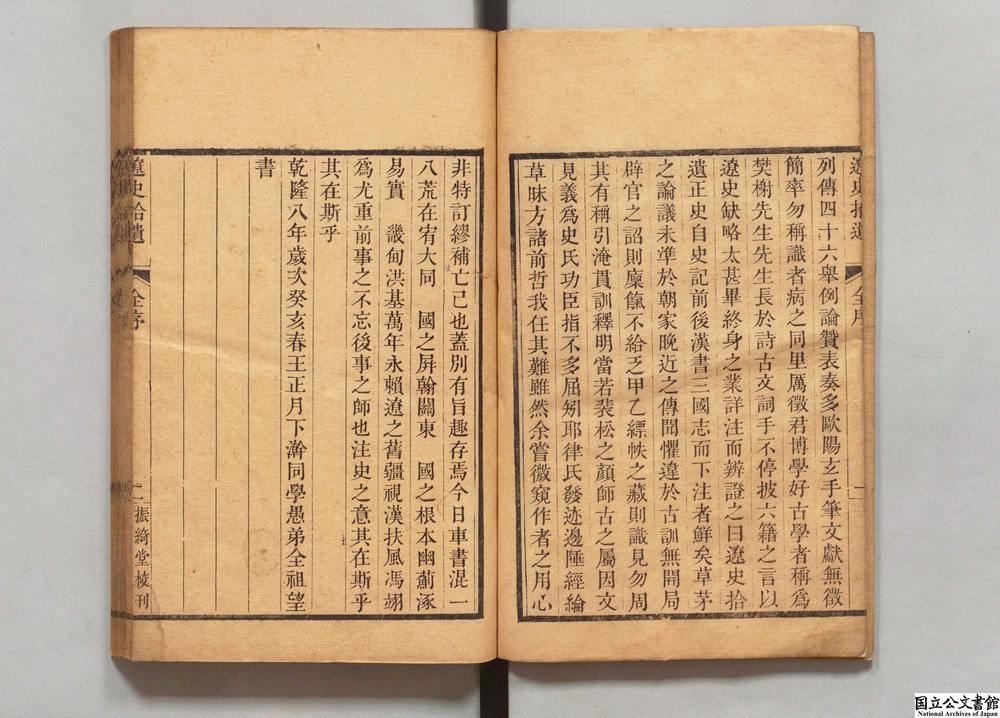 遼史拾遺
全序
一
列傳四十六舉例論贊表奏多歐陽玄手筆文獻無徵
簡率勿稱識者病之同里厲徵君博學好古學者稱爲
樊榭先生先生長於詩古文詞手不停披六籍之言以
遼史缺略太甚畢終身之業詳注而辨證之曰遼史拾
遺正史自史記前後漢書三國志而下注者鮮矣草茅
之論議未準於朝家晚近之傳聞懼違於古訓無開局
辟官之詔則廩餼不給乏甲乙縹帙之藏則識見勿周
其有稱引淹貫訓釋明當若裴松之顏師古之屬因文
見義爲史氏功臣指不多屈矧耶律氏發迹邊陲經綸
草昧方諸前哲我任其難雖然余嘗微窺作者之用心
非特訂繆補亡已也蓋別有旨趣存焉今日車書混一
八荒在宥大同 國之屏翰關東 國之根本幽薊涿
易實 畿甸洪基萬年永賴遼之舊疆視漢扶風馮翊
爲尤重前事之不忘後事之師也注史之意其在斯乎
其在斯乎
乾隆八年歲次癸亥春王正月下澣同學愚弟全祖望
書
遼史拾遺
全序
二
振綺堂梓刊
国立公文書館
National Archives of Japan